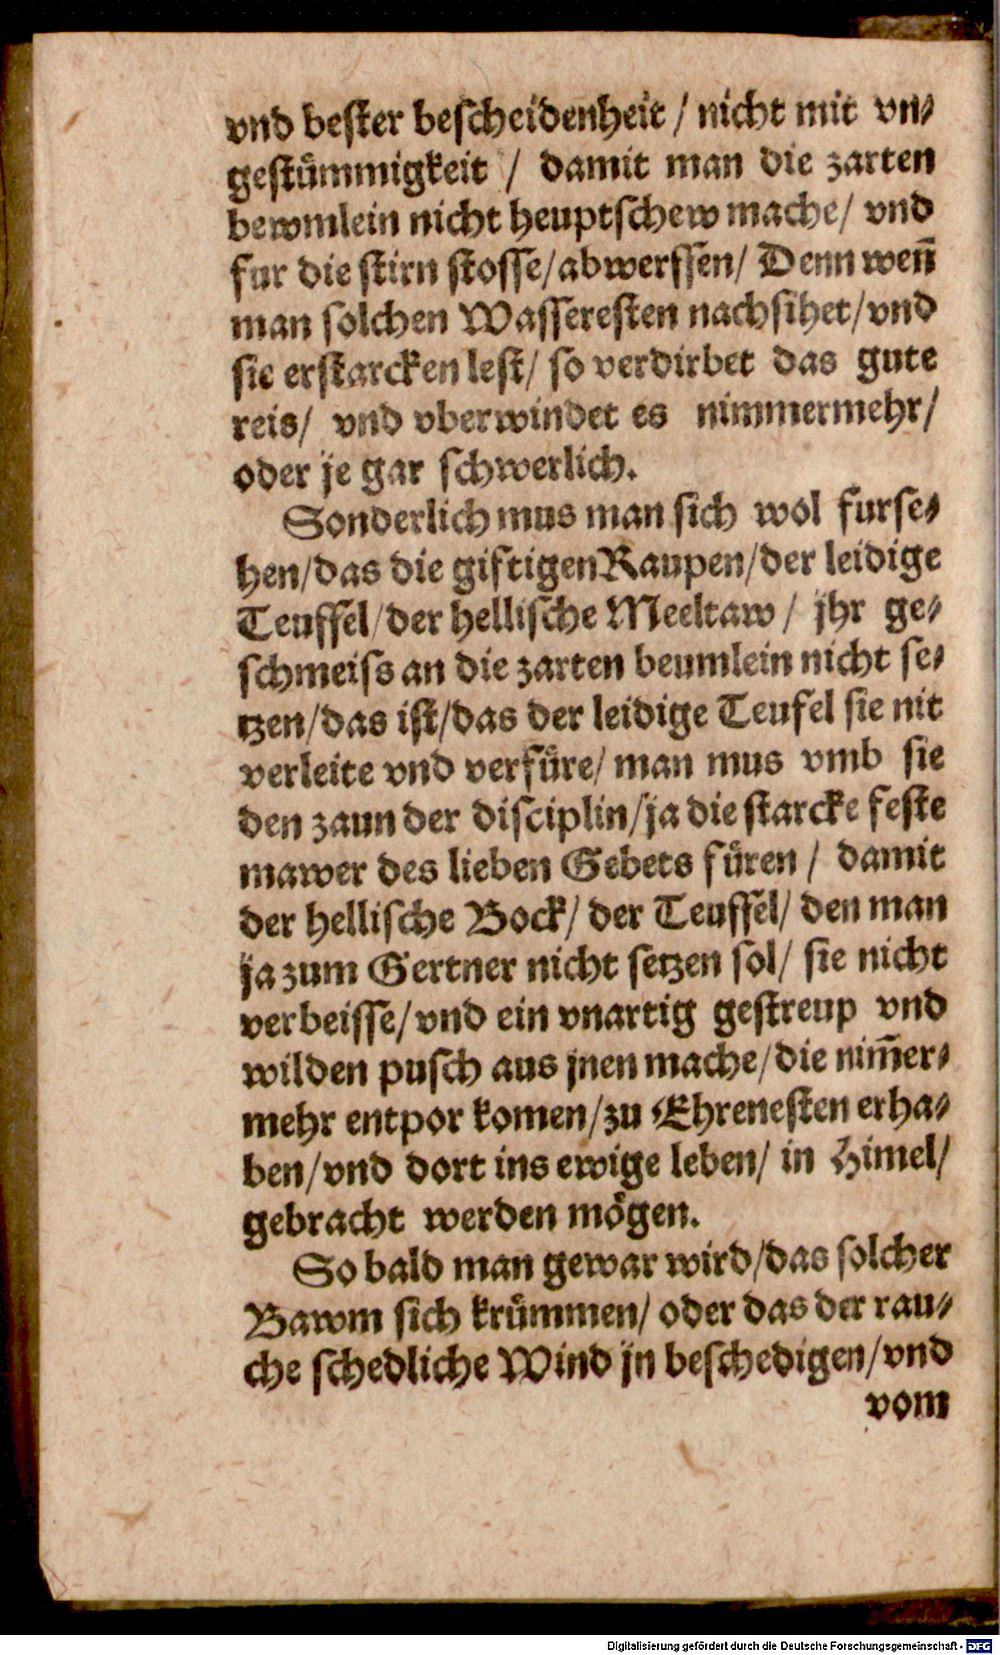 vnd bester bescheidenheit / nicht mit vn⸗
gestuͤmmigkeit / damit man die zarten
bewmlein nicht heuptschew mache/ vnd
fur die stirn stosse/abwerffen/ Denn weñ
man solchen Wasseresten nachsihet/vnd
sie erstarcken lest/ so verdirbet das gute
reis/ vnd vberwindet es nimmermehr/
oder je gar schwerlich.
Sonderlich mus man sich wol furse⸗
hen/das die giftigen Raupen/der leidige
Teuffel/der hellische Meeltaw / jhr ge⸗
schmeiss an die zarten beumlein nicht se⸗
tzen/das ist/das der leidige Teufel sie nit
verleite vnd verfuͤre/ man mus vmb sie
den zaun der disciplin/ja die starcke feste
mawer des lieben Gebets fuͤren / damit
der hellische Bock/ der Teuffel/ den man
ja zum Gertner nicht setzen sol/ sie nicht
verbeisse/vnd ein vnartig gestreup vnd
wilden pusch aus jnen mache/die nim̃er⸗
mehr entpor komen/zu Ehrenesten erha⸗
ben/vnd dort ins ewige leben/ in Himel/
gebracht werden moͤgen.
So bald man gewar wird/das solcher
Bawm sich kruͤmmen/ oder das der rau⸗
che schedliche Wind jn beschedigen/vnd
vom
Digitalisierung gefördert durch die Deutsche Forschungsgemeinschaft - DFG